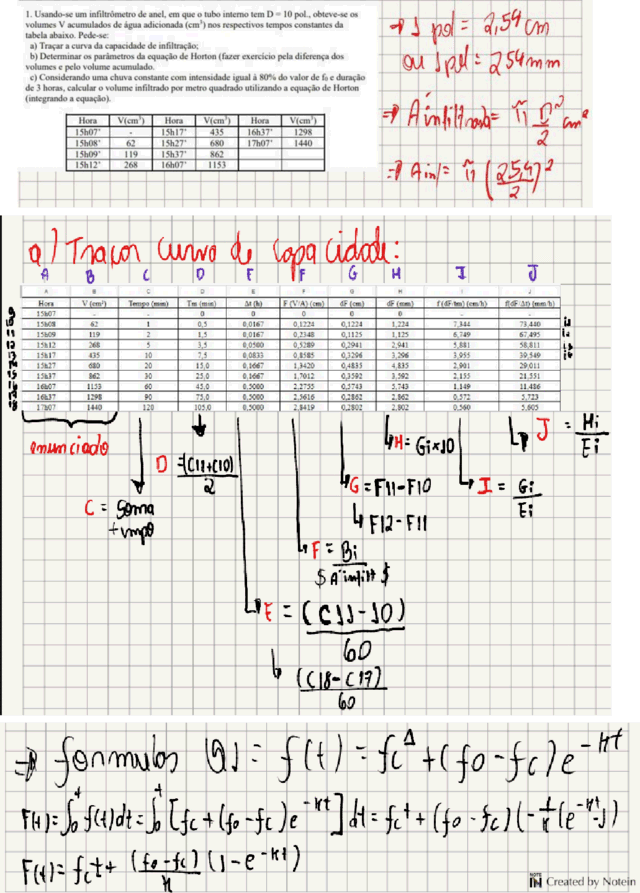 1. Usando-se um infiltrômetro de anel, em que o tubo interno tem D = 10 pol., obteve-se os
volumes V acumulados de água adicionada (cm³) nos respectivos tempos constantes da
tabela abaixo. Pede-se:
a) Traçar a curva da capacidade de infiltração;
b) Determinar os parâmetros da equação de Horton (fazer exercício pela diferença dos
volumes e pelo volume acumulado.
c) Considerando uma chuva constante com intensidade igual à 80% do valor de f₀ e duração
de 3 horas, calcular o volume infiltrado por metro quadrado utilizando a equação de Horton
(integrando a equação).
Hora V(cm³) Hora V(cm³) Hora V(cm³)
15h07' - 15h17' 435 16h37' 1298
15h08' 62 15h27' 680 17h07' 1440
15h09' 119 15h37' 862
15h12' 268 16h07' 1153
⇒ 1 pol = 2,54 cm
ou 1 pol = 254 mm
⇒ A infiltrada = π D²/2 cm²
⇒ A inf = π (25,4/2)²
a) Traçar curva de capacidade:
A B C D E F G H I J
A B C D E F G H I J
Hora V (cm³) Tempo (min) Tm (min) Δt (h) F (V/A) (cm) dF (cm) dF (mm) f (dF/tm) (cm/h) f(dF/Δt) (mm/h)
15h07 - - 0 0 0 0 0 - -
15h08 62 1 0,5 0,0167 0,1224 0,1224 1,224 7,344 73,440
15h09 119 2 1,5 0,0167 0,2348 0,1125 1,125 6,749 67,495
15h12 268 5 3,5 0,0500 0,5289 0,2941 2,941 5,881 58,811
15h17 435 10 7,5 0,0833 0,8585 0,3296 3,296 3,955 39,549
15h27 680 20 15,0 0,1667 1,3420 0,4835 4,835 2,901 29,011
15h37 862 30 25,0 0,1667 1,7012 0,3592 3,592 2,155 21,551
16h07 1153 60 45,0 0,5000 2,2755 0,5743 5,743 1,149 11,486
16h37 1298 90 75,0 0,5000 2,5616 0,2862 2,862 0,572 5,723
17h07 1440 120 105,0 0,5000 2,8419 0,2802 2,802 0,560 5,605
enunciado
C = Soma
tempo
D =(C11+C10)/2
E = (C11-10)/60
(C18-C17)/60
F = Bi/$A infilt$
G = F11-F10
F12-F11
H = Gi×10
I = Gi/Ei
J = Hi/Ei
⇒ formulas Q) = f(t) = fc + (fo-fc)e^-Kt
F(t) = ∫₀ᵗ f(t)dt = ∫₀ᵗ [fc + (fo-fc)e^-Kt] dt = fc t + (fo-fc)(-1/K (e^-Kt -1)
F(t) = fc t + (fo-fc)/K (1-e^-Kt)
NOTE IN Created by Notein